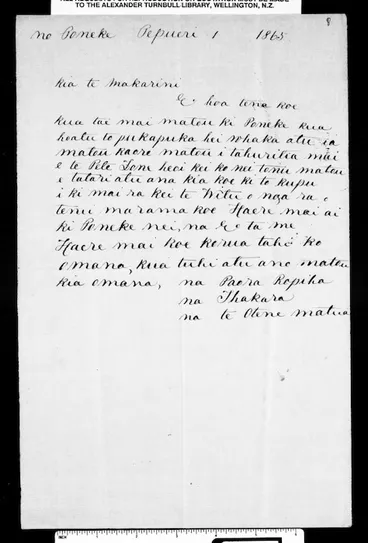 TO THE ALEXANDER TURNBULL LIBRARY, WELLINGTON, N.Z.
no Poneke Pepueri 1 1865
kia te makarini
E hoa tena koe
kua tae mai matou ki Poneke kua
hoatu to pukapuka hei whaka atu ia
matou kaore matou i tahuritia mai
e te Pete heoi kei ko nei tonu matou
e tatari atu ana kia koe ki to kupu
i ki mai ra kei te Witu o nga ra o
tenei marama koe Haere mai ai
ki Poneke nei, na E ta me
Haere mai koe korua tahi ko
omana, kua tuhi atu ano matou
kia omana, na Paora Ropiha
na Ihakara
na te Otene matua